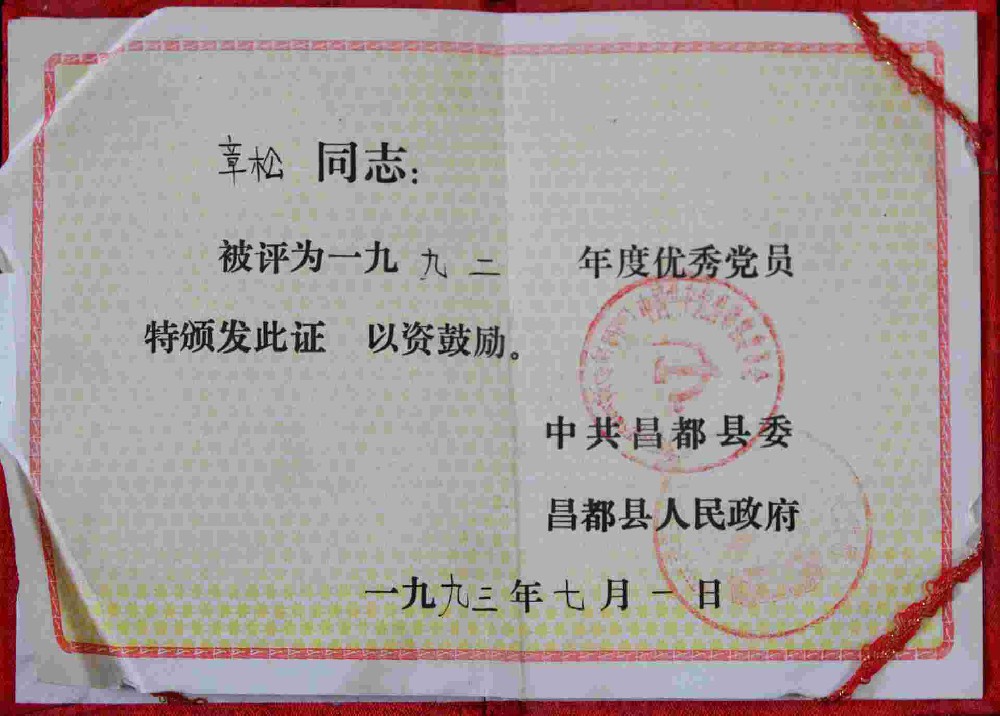 章松 同志：
被评为一九九二 年度优秀党员
特颁发此证 以资鼓励。
中共昌都县委
昌都县人民政府
一九九三年七月一日